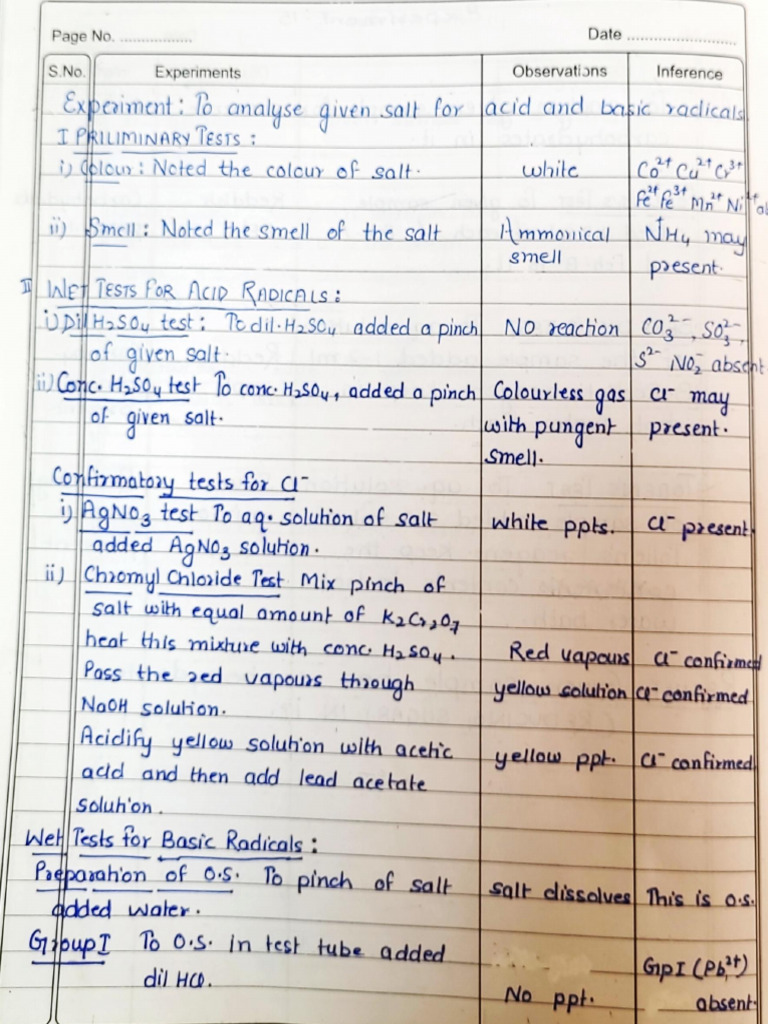 Page No. ................ Date ..........................
S.No. Experiments Observations Inference
Experiment: To analyse given salt for acid and basic radicals
I PRILIMINARY TESTS :
i) Colour : Noted the colour of salt. white Co²⁺ Cu²⁺ Cr³⁺
Fe²⁺ Fe³⁺ Mn²⁺ Ni²⁺ ab
ii) Smell : Noted the smell of the salt Ammonical NH₄⁺ may
smell present.
II WET TESTS FOR ACID RADICALS :
i) Dil H₂SO₄ test : To dil. H₂SO₄ added a pinch NO reaction CO₃²⁻, SO₃²⁻,
of given salt. S²⁻ NO₂⁻ absent
ii) Conc. H₂SO₄ test To conc. H₂SO₄, added a pinch Colourless gas Cl⁻ may
of given salt. with pungent present.
smell.
Confirmatory tests for Cl⁻
i) AgNO₃ test To aq. solution of salt white ppts. Cl⁻ present.
added AgNO₃ solution.
ii) Chromyl Chloride Test Mix pinch of
salt with equal amount of K₂Cr₂O₇
heat this mixture with conc. H₂SO₄. Red vapours Cl⁻ confirmed
Pass the red vapours through yellow solution Cl⁻ confirmed
NaOH solution.
Acidify yellow solution with acetic yellow ppt. Cl⁻ confirmed
acid and then add lead acetate
solution.
Wet Tests for Basic Radicals :
Preparation of O.S. To pinch of salt salt dissolves This is O.S.
added water.
Group I To O.S. in test tube added GrpI (Pb²⁺)
dil HCl. No ppt. absent.